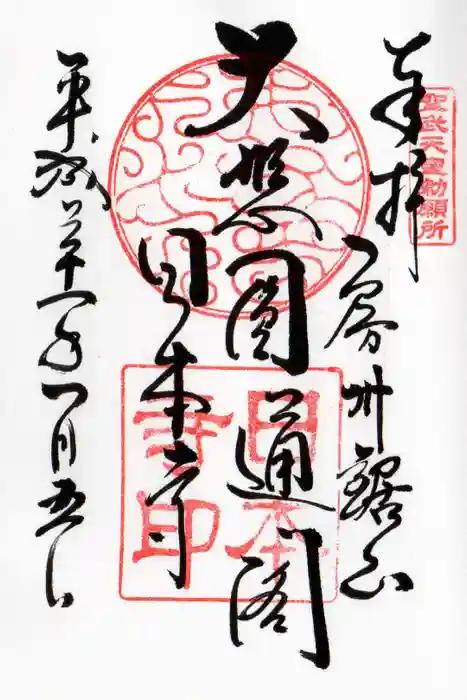 聖武天皇勅願所
奉拝
房州鋸山
大悲圓通閣
日本寺
日本
寺印
平成二十一年一月五日